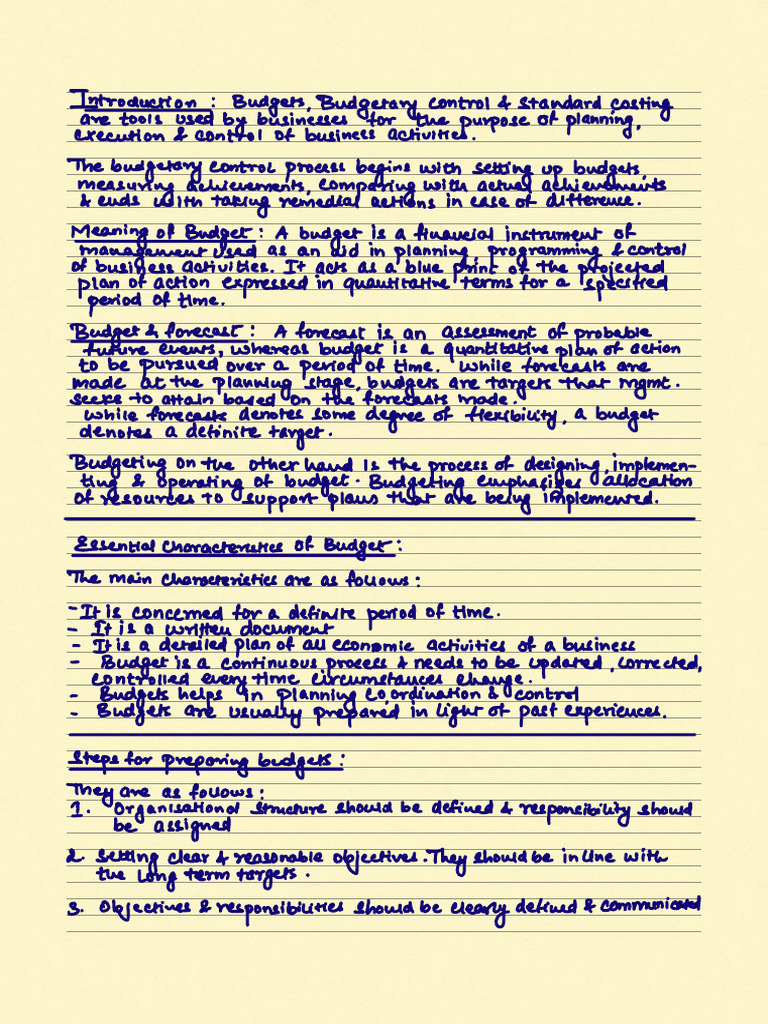 Introduction : Budgets, Budgetary control & standard costing
are tools used by businesses for the purpose of planning,
execution & control of business activities.
The budgetary control process begins with setting up budgets,
measuring achievements, comparing with actual achievements
& ends with taking remedial actions in case of difference.
Meaning of Budget : A budget is a financial instrument of
management used as an aid in planning, programming & control
of business activities. It acts as a blue print of the projected
plan of action expressed in quantitative terms for a specified
period of time.
Budget & forecast : A forecast is an assessment of probable
future events, whereas budget is a quantitative plan of action
to be pursued over a period of time. While forecasts are
made at the planning stage, budgets are targets that mgmt.
seeks to attain based on the forecasts made.
While forecasts denotes some degree of flexibility, a budget
denotes a definite target.
Budgeting on the other hand is the process of designing, implemen-
ting & operating of budget. Budgeting emphasises allocation
of resources to support plans that are being implemented.
Essential Characteristics of Budget :
The main characteristics are as follows :
- It is concerned for a definite period of time.
- It is a written document
- It is a detailed plan of all economic activities of a business
- Budget is a continuous process & needs to be updated, corrected,
controlled every time circumstances change.
- Budgets helps in planning co,ordination & control
- Budgets are usually prepared in light of past experiences.
Steps for preparing budgets :
They are as follows :
1. Organisational structure should be defined & responsibility should
be assigned
2. Setting clear & reasonable objectives. They should be in line with
the long term targets.
3. Objectives & responsibilities should be clearly defined & communicated